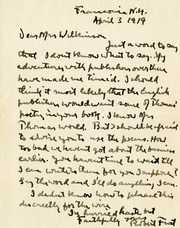 Franconia N.H.
April 3 1919
Dear Mrs Wilkinson
Just a word to say
that I don't know what to say. My
adventures with publishers over there
have made me timid. I should
think it most likely that the English
publishers would want some of Thomas'
poetry in your book. I know Mrs
Thomas would. But I should be afraid
to advise you to use the poems. How
too bad we have not got about this business
earlier. You haven't time to wait till
I can write them for you I suppose?
Say the word and I'll do anything I can.
I don't know how to phrase this
discreetly for the wire
In hurried haste but
Faithfully yours
Robert Frost